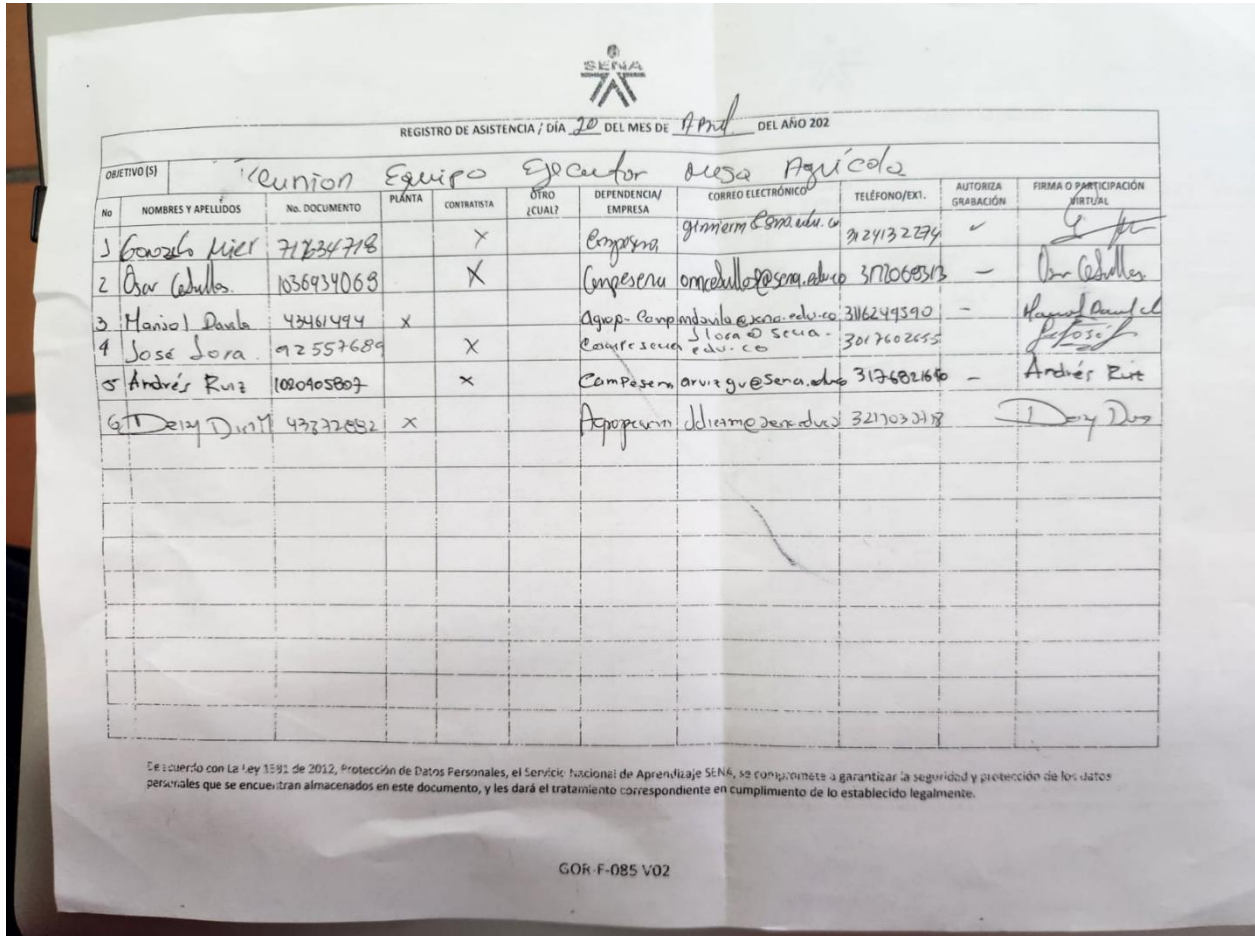 SENA
REGISTRO DE ASISTENCIA / DÍA 20 DEL MES DE April DEL AÑO 202
OBJETIVO (S) Reunion Equipo Ejecutor Mesa Agrícola
No NOMBRES Y APELLIDOS No. DOCUMENTO PLANTA CONTRATISTA OTRO ¿CUAL? DEPENDENCIA/ EMPRESA CORREO ELECTRÓNICO TELÉFONO/EXT. AUTORIZA GRABACIÓN FIRMA O PARTICIPACIÓN VIRTUAL
1 Gonzalo Mier X 3124132274
2 Óscar Ceballos 1036934069 X Campesena
3 Marisol Davila 43461494 X Agrop- Camp mdavila@sena.edu.co 3116249590 -
4 José Lora 92557689 X Campesena jlora@sena.edu.co 3017602655
5 Andrés Ruiz 1020405807 X Campesena arvizgu@sena.edu.co - Andrés Ruiz
6 43372882 X
De acuerdo con La Ley 1581 de 2012, Protección de Datos Personales, el Servicio Nacional de Aprendizaje SENA, se compromete a garantizar la seguridad y protección de los datos
personales que se encuentran almacenados en este documento, y les dará el tratamiento correspondiente en cumplimiento de lo establecido legalmente.
GOR-F-085 V02